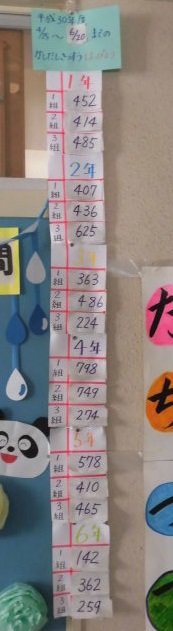 平成30年度
4/5～6/20までの
1年
1組 452
2組 414
3組 485
2年
1組 407
2組 436
3組 625
3年
1組 363
2組 486
3組 224
4年
1組 798
2組 749
3組 274
5年
1組 578
2組 410
3組 465
6年
1組 142
2組 362
3組 259
間
た
ち
つ